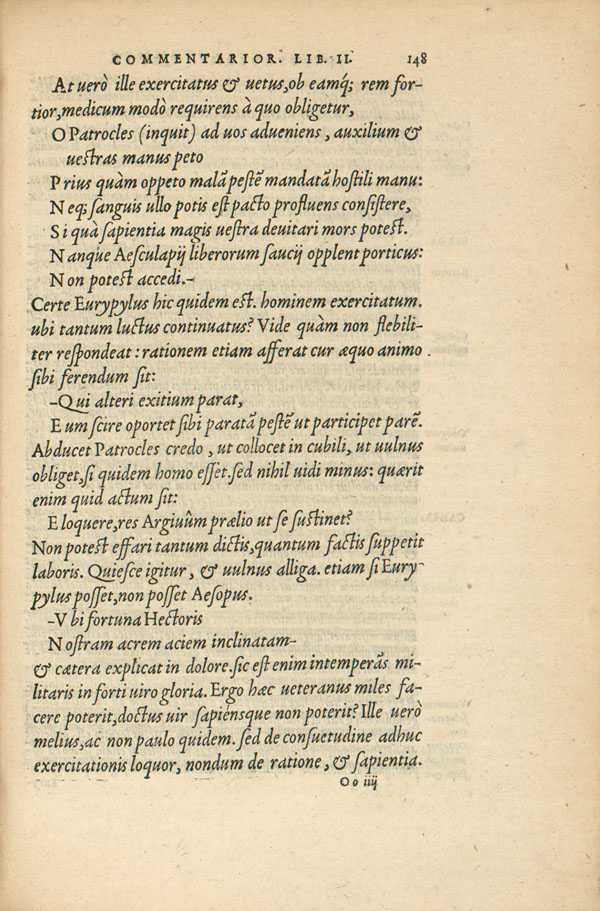 COMMENTARIOR. LIB. II. 148
At uerò ille exercitatus & uetus, ob eamq́; rem for-
tior, medicum modò requirens à quo obligetur,
O Patrocles (inquit) ad uos adueniens, auxilium &
uestras manus peto
Prius quàm oppeto malā pestē mandatā hostili manu:
Neq; sanguis ullo potis est pacto profluens consistere,
Si quà sapientia magis uestra deuitari mors potest.
Nanque Aesculapij liberorum saucij opplent porticus:
Non potest accedi.-
Certe Eurypylus hic quidem est. hominem exercitatum.
ubi tantum luctus continuatus? Vide quàm non flebili-
ter respondeat: rationem etiam afferat cur æquo animo
sibi ferendum sit:
-Qui alteri exitium parat,
Eum scire oportet sibi paratā pestē ut participet parē.
Abducet Patrocles credo, ut collocet in cubili, ut uulnus
obliget, si quidem homo esset. sed nihil uidi minus: quærit
enim quid actum sit:
Eloquere, res Argiuûm prælio ut se sustinet?
Non potest effari tantum dictis, quantum factis suppetit
laboris. Quiesce igitur, & uulnus alliga. etiam si Eury-
pylus posset, non posset Aesopus.
-Vbi fortuna Hectoris
Nostram acrem aciem inclinatam-
& cætera explicat in dolore. sic est enim intemperās mi-
litaris in forti uiro gloria. Ergo hæc ueteranus miles fa-
cere poterit, doctus uir sapiénsque non poterit? Ille uerò
melius, ac non paulo quidem. sed de consuetudine adhuc
exercitationis loquor, nondum de ratione, & sapientia.
Oo iiij